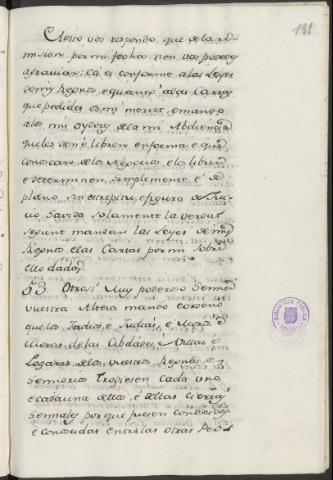 191
A esto vos respondo que de la co
mision por mi fecha non vos podedes
agraviar; Ca es conforme a las Leyes
de mis Regnos, e quanto a las Cartas
que pedides es mi merced, e mando
a los mis oydores de la mi Abdiencia
que los den e libren en forma e que
conoscan de los Negocios e los libren
e determinen simplemente e de
plano sin estrepitu, e figura de Jui
cio Savida solamente la verdat
segunt mandan las Leyes de mis
Regnos, e las Cartas por mi sobre
ello dadas.
53. Otrosi Muy poderoso Señor
vuestra Alteza mandó e ordenó
que los Judios, e Judias, e Moros, e
Moras de las Cibdades, Villas e
Logares de los vuestros Regnos, e
Sennorios trogiesen cada uno
e cada una dellos, e dellas ciertas
Sennales por que fuesen conoscidos
e conoscidas entre las otras Per
BIBLIOTECA PUBLICA